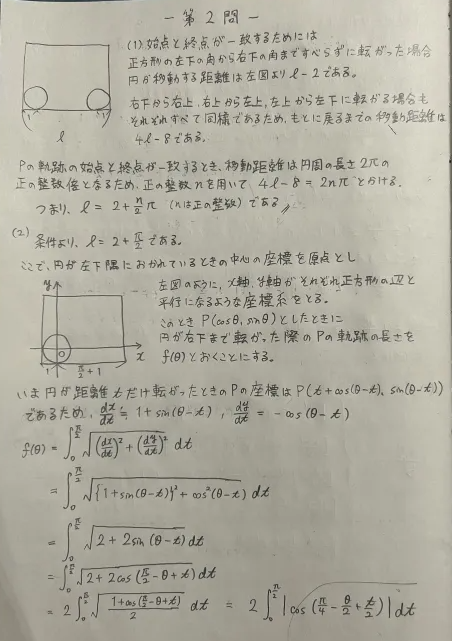 - 第2問 -
(1) 始点と終点が一致するためには
正方形の左下の角から右下の角まですべらずに転がった場合
円が移動する距離は左図より l-2である。
右下から右上、右上から左上、左上から左下に転がる場合も
それぞれすべて同様であるため、もとに戻るまでの移動距離は
4l-8である。
1 1
l
Pの軌跡の始点と終点が一致するとき、移動距離は円周の長さ2πの
正の整数倍となるため、正の整数nを用いて、4l-8=2nπとかける。
つまり、l=2+n/2 π (nは正の整数)である 〃
(2) 条件より、l=2+π/2 である。
ここで、円が左下隅におかれているときの中心の座標を原点とし
左図のように、x軸、y軸がそれぞれ正方形の辺と
平行になるような座標系をとる。
このとき P(cosθ, sinθ)としたときに
円が右下まで転がった際のPの軌跡の長さを
f(θ)とおくことにする。
y
O
x
1 π/2+1
いま円が距離tだけ転がったときのPの座標はP(t+cos(θ-t), sin(θ-t))
であるため、dx/dt = 1+sin(θ-t), dy/dt = -cos(θ-t)
f(θ) = ∫₀^{π/2} √((dx/dt)²+(dy/dt)²) dt
= ∫₀^{π/2} √({1+sin(θ-t)}²+cos²(θ-t)) dt
= ∫₀^{π/2} √(2+2sin(θ-t)) dt
= ∫₀^{π/2} √(2+2cos(π/2-θ+t)) dt
= 2∫₀^{π/2} √((1+cos(π/2-θ+t))/2) dt = 2∫₀^{π/2} |cos(π/4-θ/2+t/2)| dt